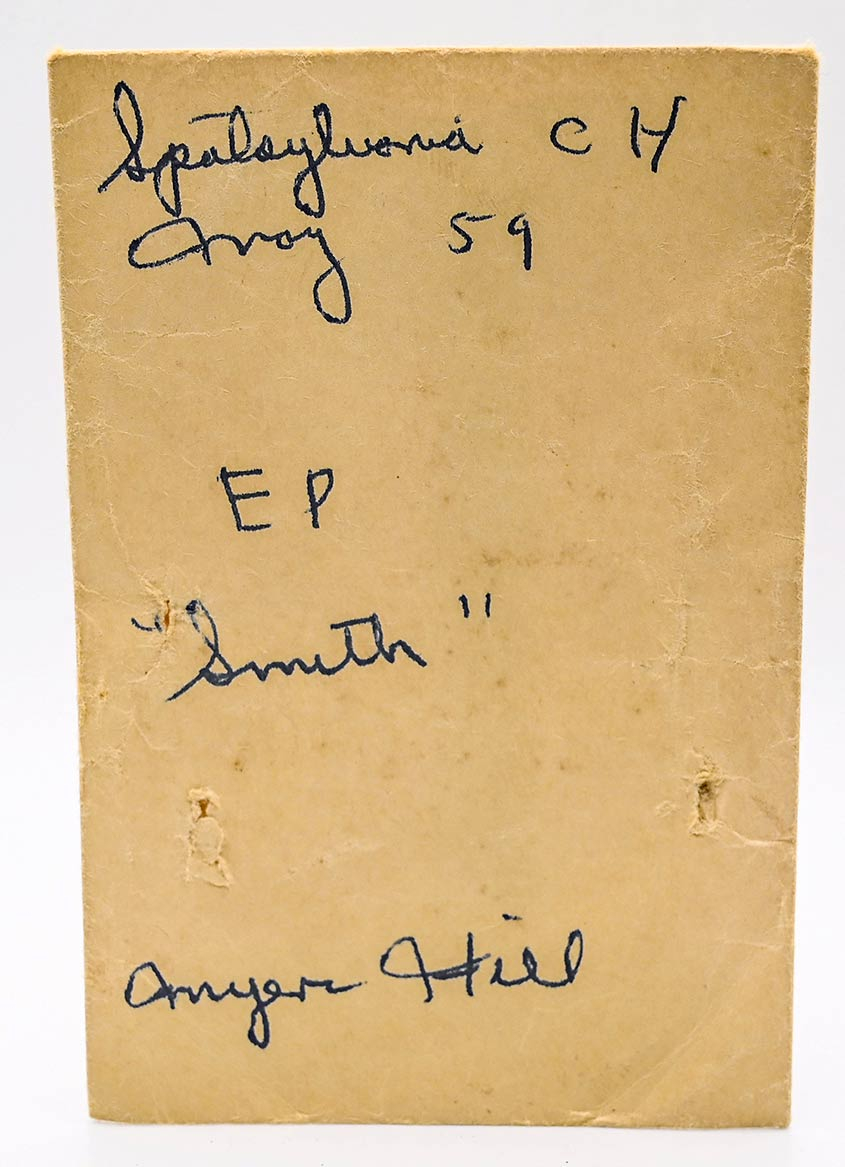 Spotsylvania C H
May 59
E P
"Smith"
Myers Hill